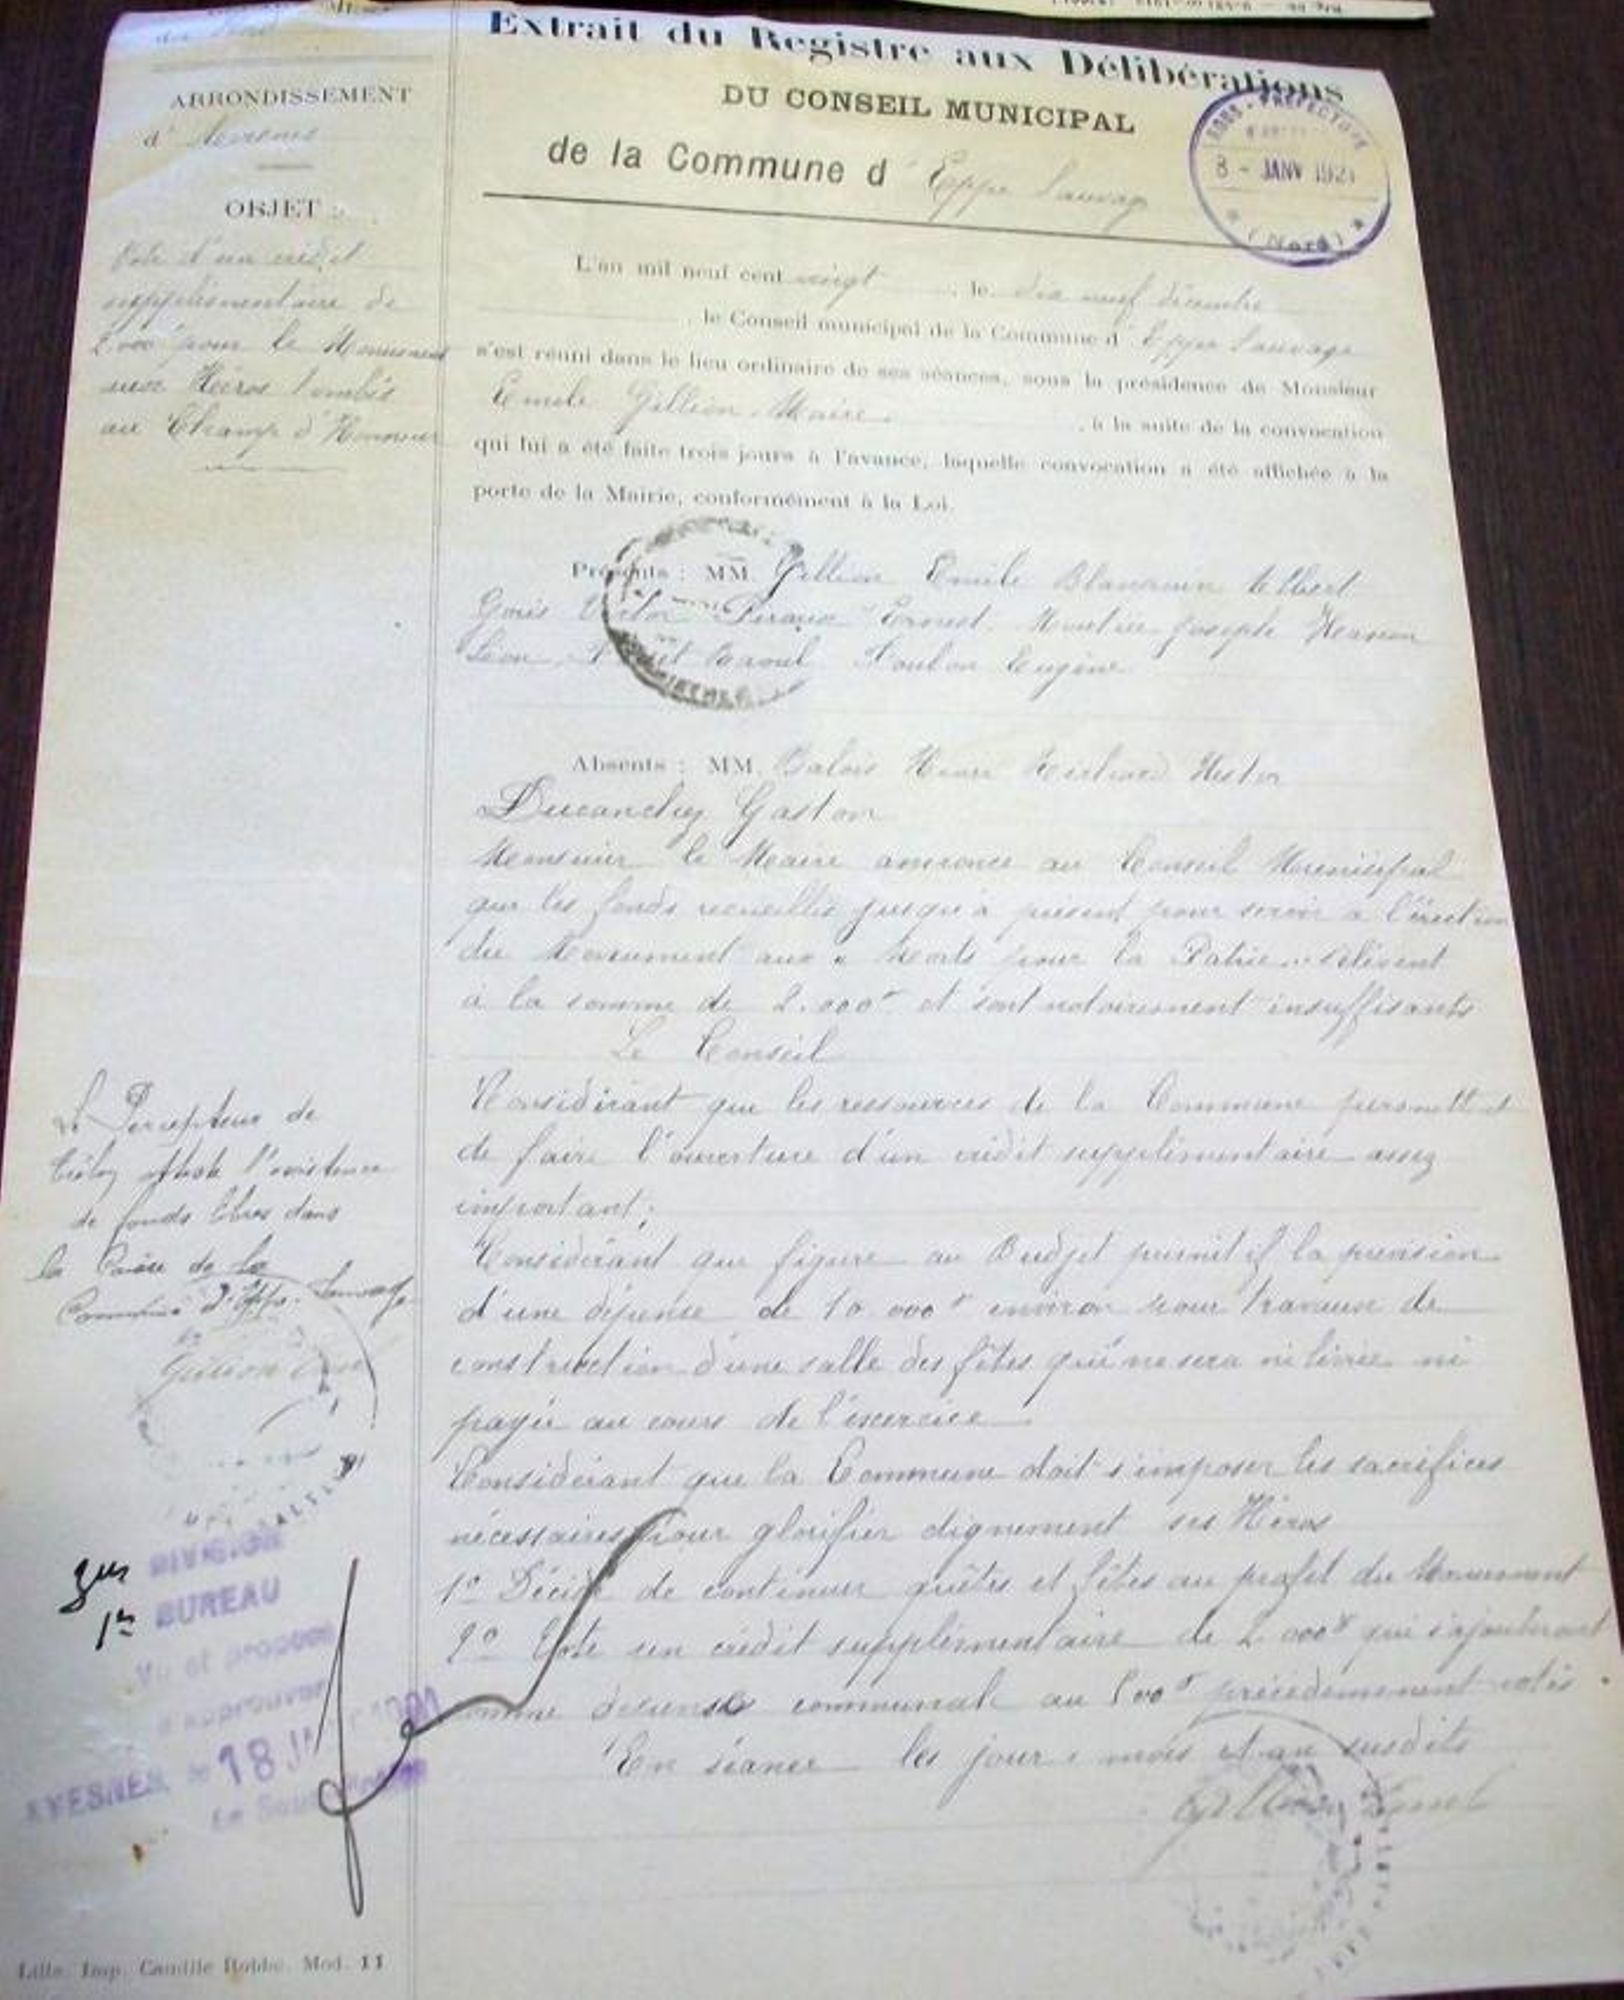 ARRONDISSEMENT
d' Avesnes
OBJET :
Vote d'un crédit
supplémentaire de
2.000f pour le Monument
aux Héros tombés
au Champ d'Honneur
Extrait du Registre aux Délibérations
DU CONSEIL MUNICIPAL
de la Commune d' Eppe Sauvage
SOUS-PRÉFECTURE
8 - JANV 1921
(Nord)
L'an mil neuf cent vingt, le dix neuf décembre
, le Conseil municipal de la Commune d' Eppe Sauvage
s'est réuni dans le lieu ordinaire de ses séances, sous la présidence de Monsieur
Emile Gillion Maire. , à la suite de la convocation
qui lui a été faite trois jours à l'avance, laquelle convocation a été affichée à la
porte de la Mairie, conformément à la Loi.
Présents : MM. Gillion Emile Albert
Victor Ernest Joseph
Léon Raoul Eugène
Absents : MM. Henri
Ducanchez Gaston
Monsieur le Maire annonce au Conseil Municipal
que les fonds recueillis jusqu'à présent pour servir à l'érection
du Monument aux « Morts pour la Patrie » s'élèvent
à la somme de 2.000f et sont notoirement insuffisants
Le Conseil
Considérant que les ressources de la Commune permettent
de faire l'ouverture d'un crédit supplémentaire assez
important;
Considérant que figure au Budget primitif la prévision
d'une dépense de 10 000f environ pour travaux de
construction d'une salle des fêtes qui ne sera ni livrée ni
payée au cours de l'exercice
Considérant que la Commune doit s'imposer les sacrifices
nécessaires pour glorifier dignement ses Héros
1° Décide de continuer quêtes et fêtes au profit du Monument
2° Vote un crédit supplémentaire de 2 000f qui s'ajouteront
comme dépense communale au 500f précédemment votés
En séance les jour, mois et an susdits
Gillion Emile
Le Percepteur de
Trélon atteste l'existence
de fonds libres dans
la Caisse de la
Commune d'Eppe-Sauvage
Gillion
3me DIVISION
1er BUREAU
Vu et proposé
d'approuver
AVESNES, le 18 JANV 1921
Le Sous-Préfet
Lille. Imp. Camille Robbe. Mod. 11